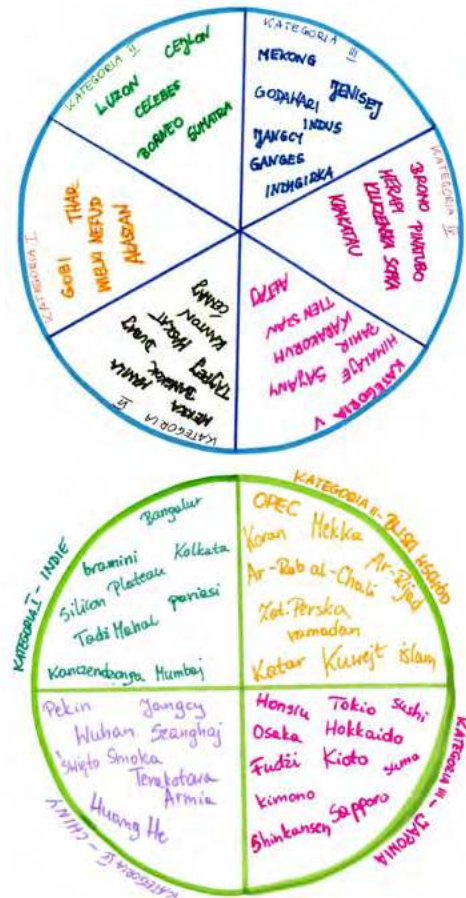 KATEGORIA I
GOBI
WIELKI NEFUD
THAR
AŁASZAN
KATEGORIA II
CEJLON
LUZON
CELEBES
BORNEO
SUMATRA
KATEGORIA III
MEKONG
JENISEJ
GODAHARI
INDUS
JANGCY
GANGES
INDIGIRKA
KATEGORIA IV
BROMO PINATUBO
MERAPI
KLUCZEWSKA SOPKA
KRAKATAU
KATEGORIA V
HIMALAJE SAJANY
PAMIR
KARAKORUM
TIEN SZAN
AŁTAJ
KATEGORIA VI
MEKKA MANILA
BANGKOK DUBAJ
TAJPEJ MASKAT
KANTON
KATEGORIA I - INDIE
Bangalur
bramini Kolkata
Silicon Plateau pariasi
Tadż Mahal
Kanczendzonga Mumbaj
KATEGORIA II - BLISKI WSCHÓD
OPEC
Koran Mekka
Ar-Rab al-Chali Ar-Rijad
Zat. Perska
ramadan
Katar Kuwejt islam
KATEGORIA III - JAPONIA
Honsiu Tokio sushi
Osaka Hokkaido
Fudżi Kioto sumo
kimono
Shinkansen Sapporo
KATEGORIA IV - CHINY
Pekin Jangcy
Wuhan Szanghaj
Święto Smoka
Terakotowa
Armia
Huang He